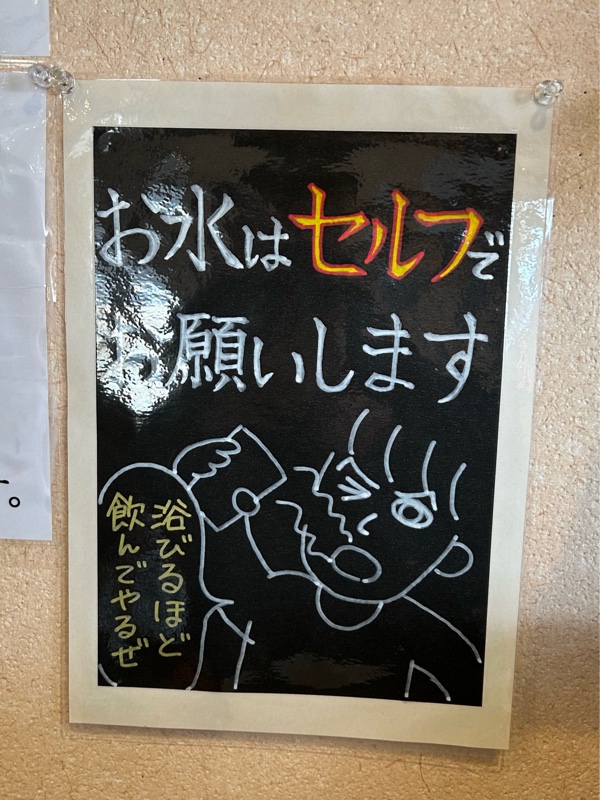 お水はセルフで
お願いします
浴びるほど
飲んでやるぜ
。